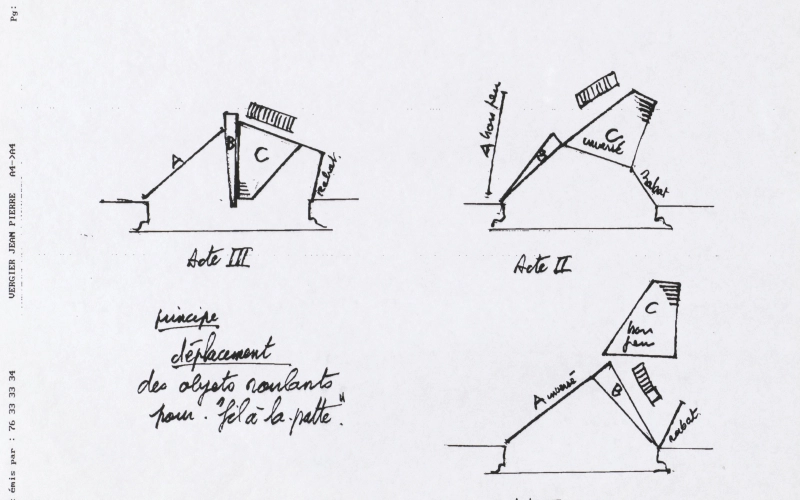 Pg:
VERGIER JEAN PIERRE A4->A4
émis par : 76 33 33 34
A
B
C
Rabat.
Acte III
A hors jeu
B
C
inversé
Rabat
Acte II
principe
déplacement
des objets roulants
pour "fil à la patte".
C
hors
jeu
A inversé
B
rabat.